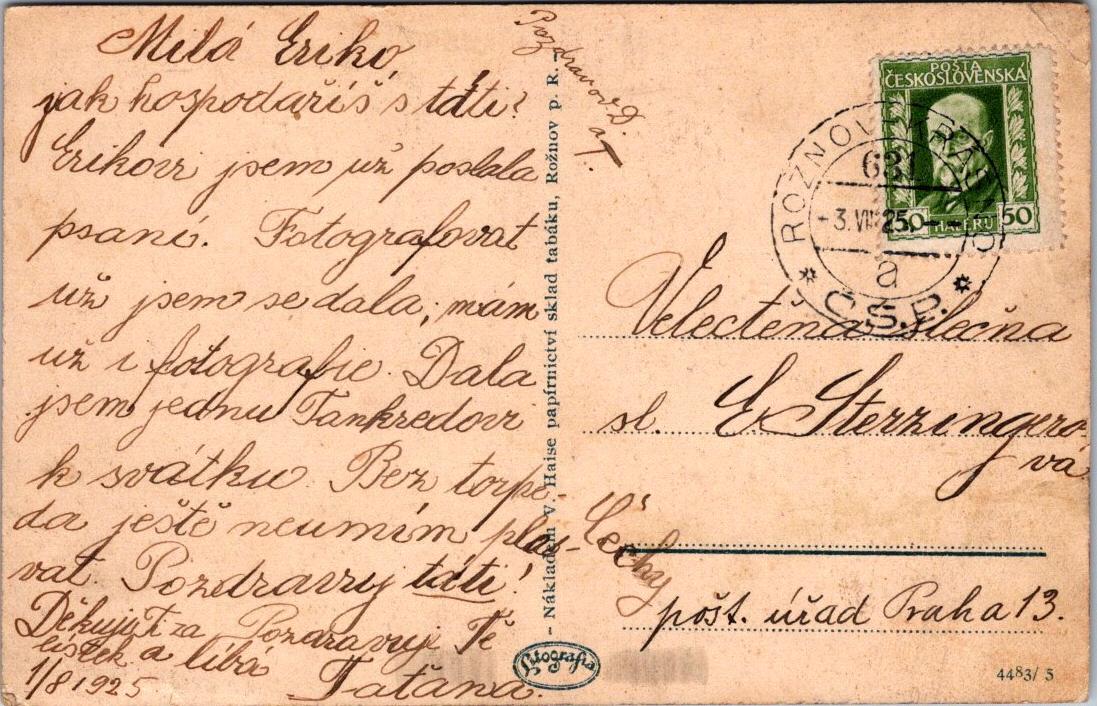 Milá Eriko,
jak hospodaříš s táti?
Erikovi jsem už poslala
psaní. Fotografovat
už jsem se dala, mám
už i fotografie. Dala
jsem jednu Tankredovi
k svátku. Bez torpe-
da ještě neumím plo-
vat. Pozdravuj táti!
Děkuji T. za
lístek
Pozdravuji Tě
a líbá
Taťána.
1/8 1925
Pozdrav od D.
a T.
- Nákladem V. Haise papírnictví sklad tabáku, Rožnov p. R. -
Litografia
POŠTA
ČESKOSLOVENSKÁ
50 HALÉŘŮ 50
ROŽNOV
631
-3.VIII 25.-
a
* Č.S.P. *
Velectěná slečna
sl. E. Sterzingero-
vá
Čechy
pošt. úřad Praha 13.
4483/5